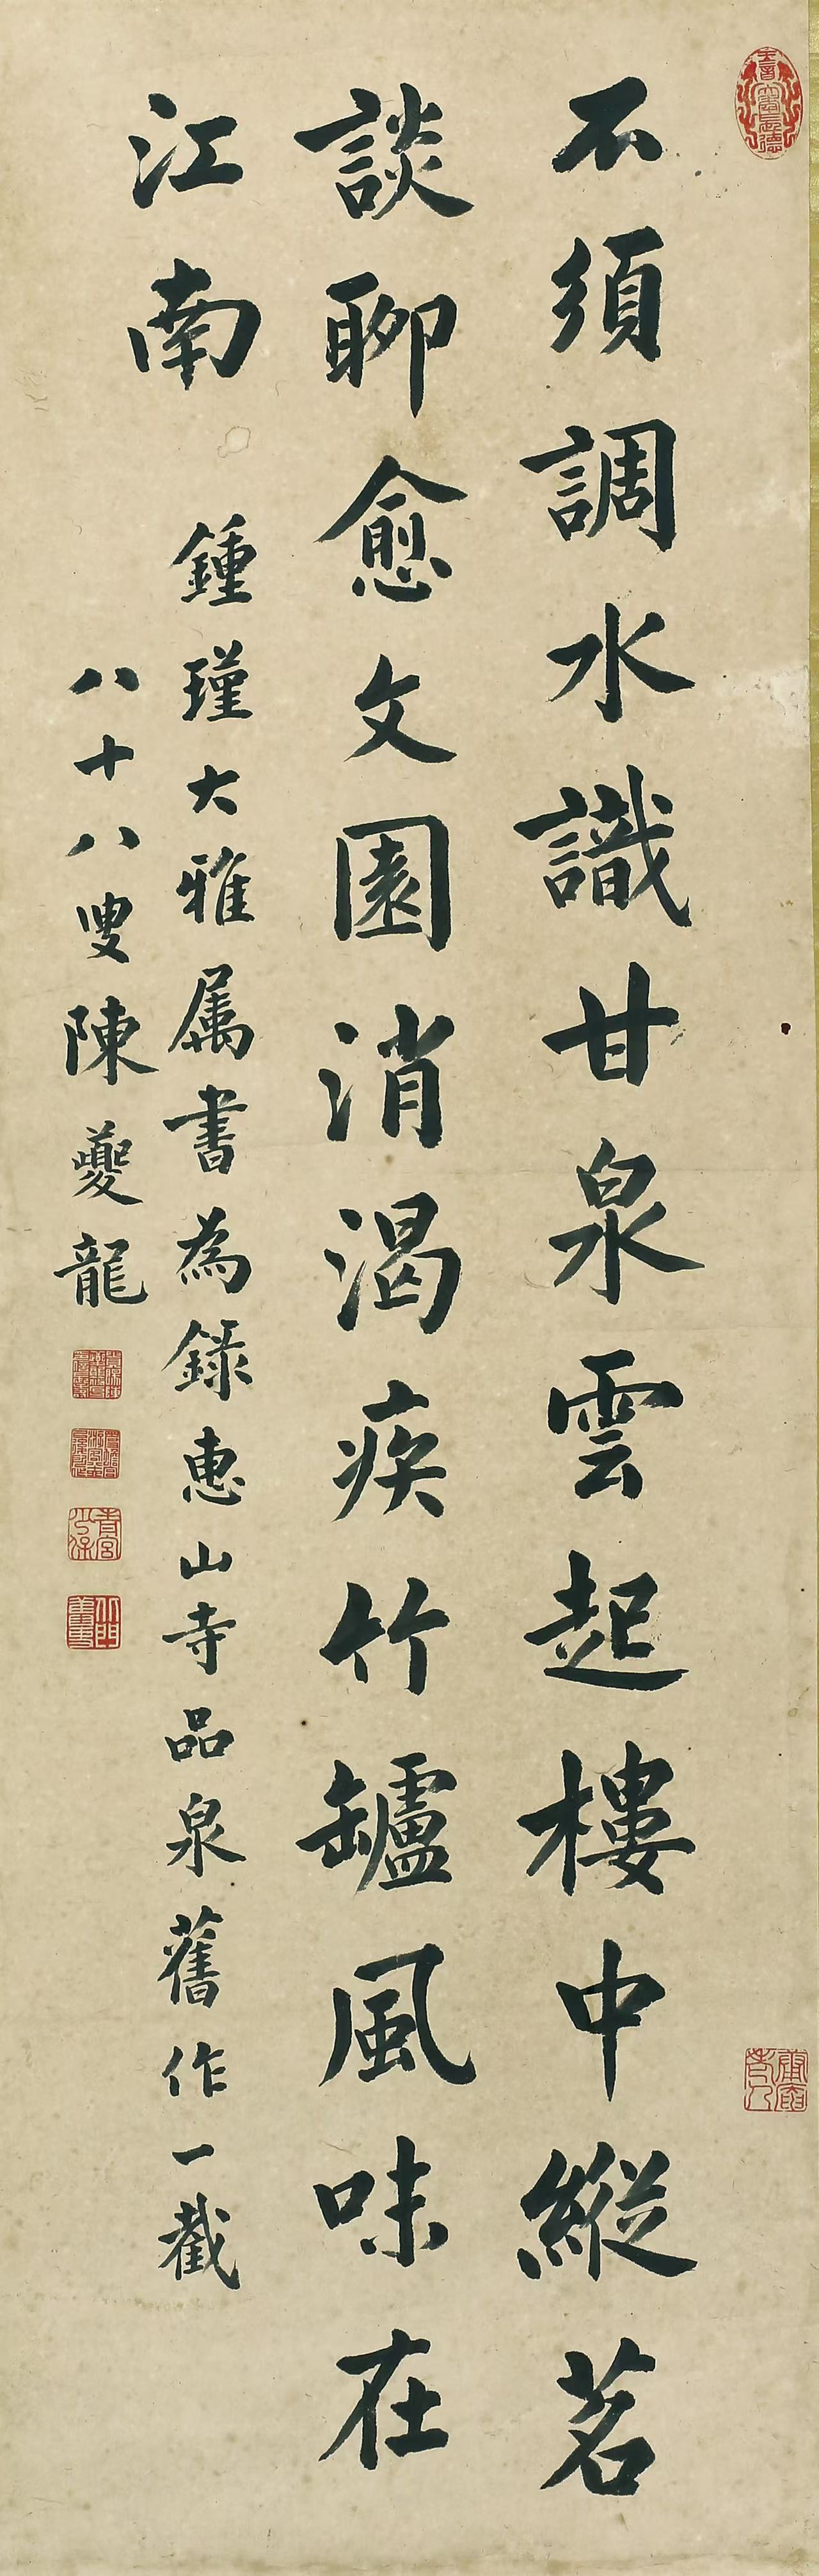 不須調水識甘泉雲起樓中縱茗
談聊愈文園消渴疾竹罏風味在
江南
鍾瑾大雅属書為錄惠山寺品泉舊作一截
八十八叟陳夔龍
青宮少保